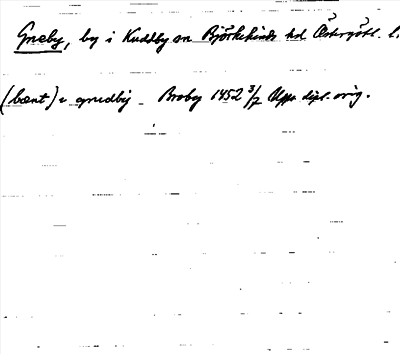 Gneby, by i Kuddby sn Björkekinds hd Östergötl. l.
(bænt) i gnedby - Broby 1452 3/7 Upps. dipl. orig.